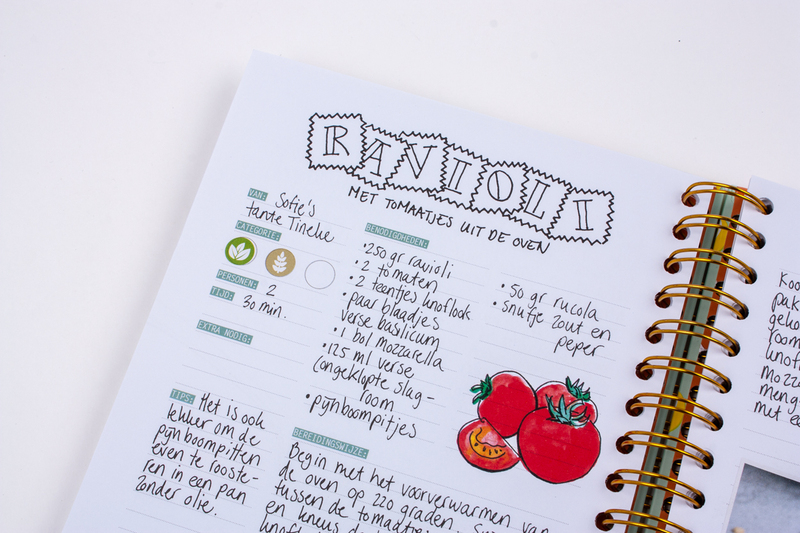 RAVIOLI
MET TOMAATJES UIT DE OVEN
VAN: Sofie's
tante Tineke
CATEGORIE:
PERSONEN: 2
TIJD: 30 min.
EXTRA NODIG:
TIPS: Het is ook
lekker om de
pijnboompitten
even te rooste-
ren in een pan
zonder olie.
BENODIGDHEDEN:
•250 gr ravioli
• 2 tomaten
• 2 teentjes knoflook
• paar blaadjes
verse basilicum
• 1 bol mozzarella
•125 ml verse
(ongeklopte slag-
room
• pijnboompitjes
• 50 gr rucola
• snufje zout en
peper
BEREIDINGSWIJZE:
Begin met het voorverwarmen van
de oven op 220 graden.
tussen de tomaatje
en kneus de
knofl
Koo
pak
geko
room
knofl
mozza
meng
met ee